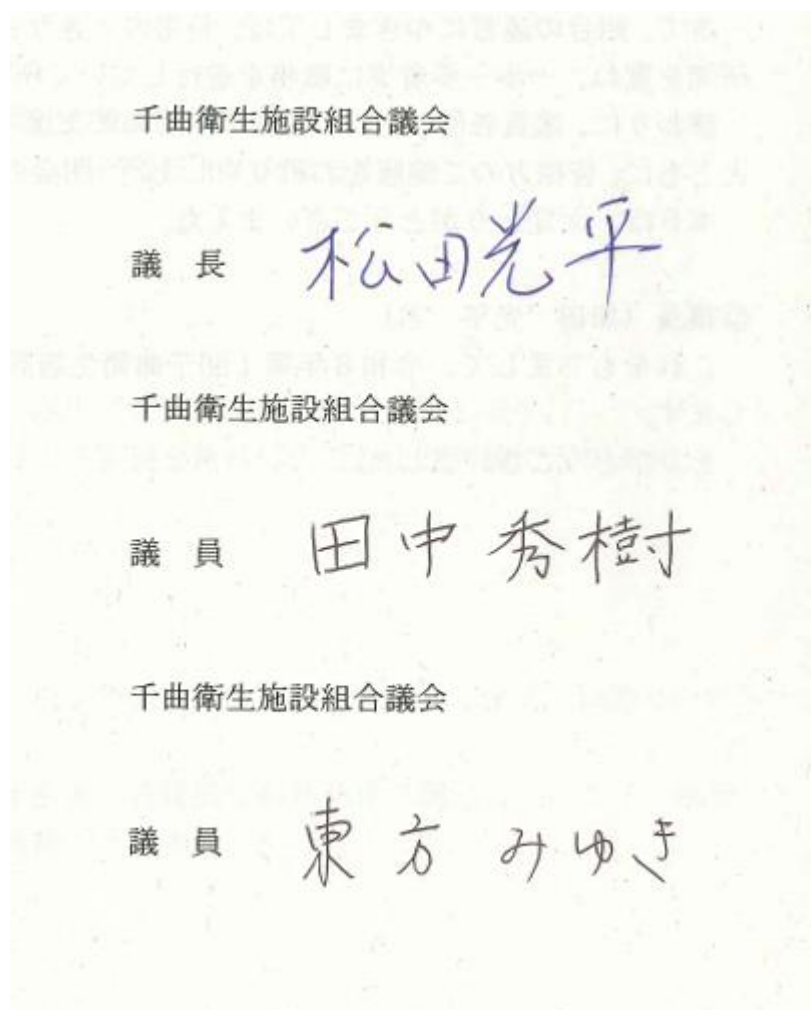 千曲衛生施設組合議会
議 長 松田光平
千曲衛生施設組合議会
議 員 田中秀樹
千曲衛生施設組合議会
議 員 東方みゆき